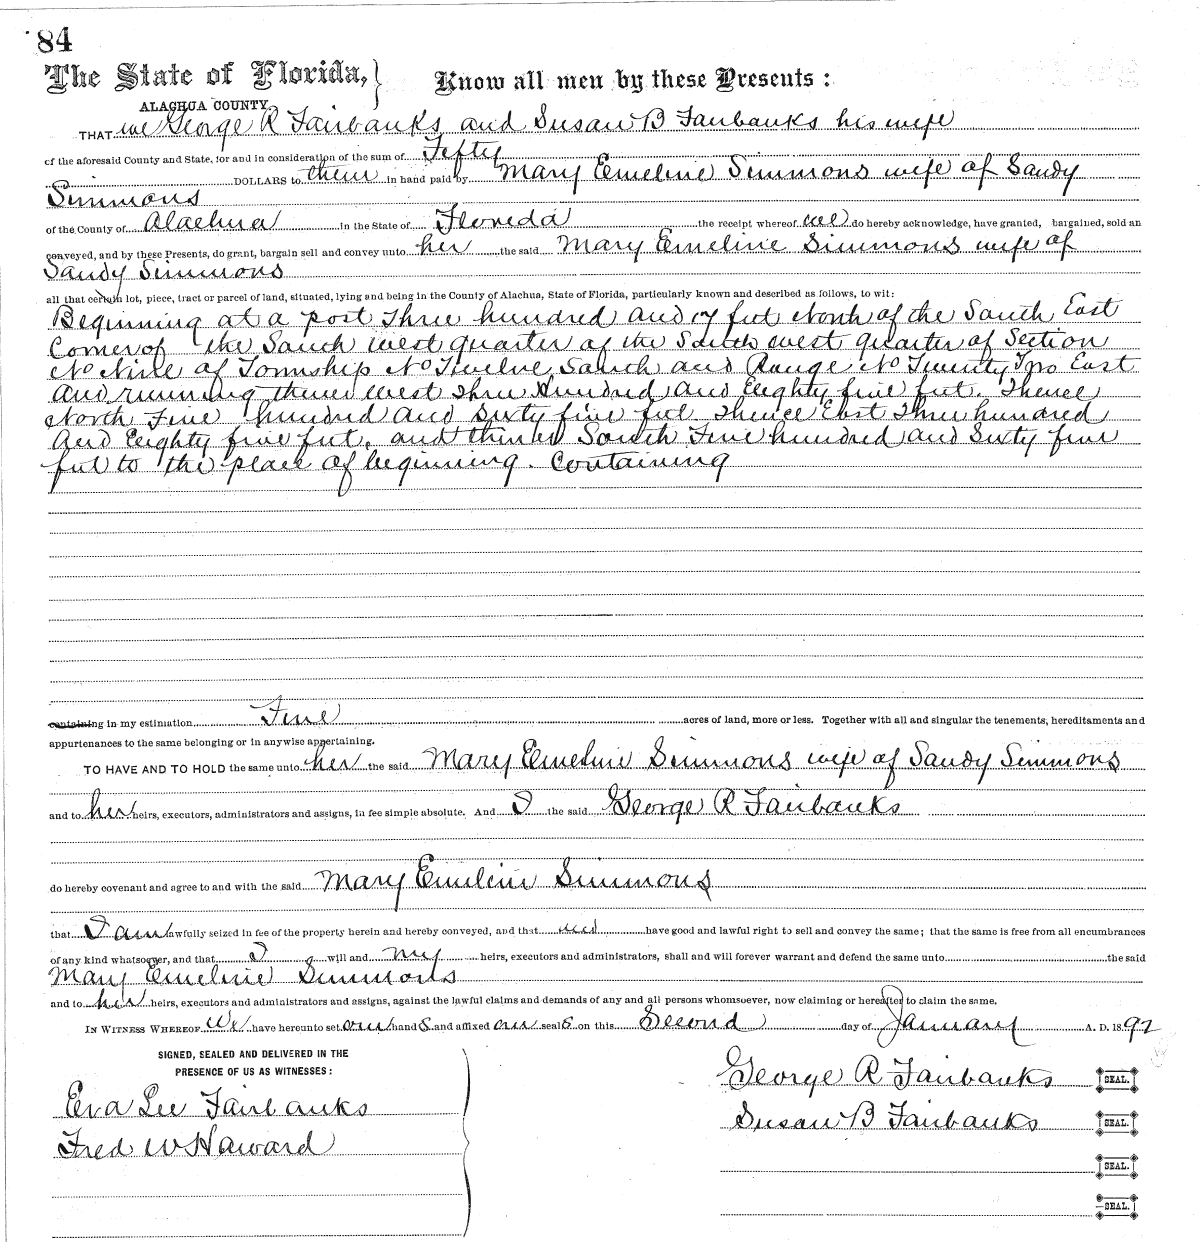 84
The State of Florida, } Know all men by these Presents :
ALACHUA COUNTY
THAT we George R Fairbanks and Susan B Fairbanks his wife
of the aforesaid County and State, for and in consideration of the sum of Fifty
DOLLARS to them in hand paid by Mary Emeline Simmons wife of Sandy
Simmons
of the County of Alachua in the State of Florida the receipt whereof we do hereby acknowledge, have granted, bargained, sold an
conveyed, and by these Presents, do grant, bargain sell and convey unto her the said Mary Emeline Simmons wife of
Sandy Simmons
all that certain lot, piece, tract or parcel of land, situated, lying and being in the County of Alachua, State of Florida, particularly known and described as follows, to wit:
Beginning at a post Three hundred and 17 feet North of the South East
Corner of the South west quarter of the South west quarter of Section
No Nine of Township No Twelve South and Range No Twenty Two East
and running thence West Three Hundred and Eighty five feet. Thence
North Five hundred and Sixty five feet Thence East Three hundred
and Eighty five feet. and thence South Five hundred and Sixty five
feet to the place of beginning. Containing
containing in my estimation Five acres of land, more or less. Together with all and singular the tenements, hereditaments and
appurtenances to the same belonging or in anywise appertaining.
TO HAVE AND TO HOLD the same unto her the said Mary Emeline Simmons wife of Sandy Simmons
and to her heirs, executors, administrators and assigns, in fee simple absolute. And I the said George R Fairbanks
do hereby covenant and agree to and with the said Mary Emelein Simmons
that I am lawfully seized in fee of the property herein and hereby conveyed, and that have good and lawful right to sell and convey the same; that the same is free from all encumbrances
of any kind whatsoever, and that I will and my heirs, executors and administrators, shall and will forever warrant and defend the same unto the said
Mary Emeline Simmons
and to her heirs, executors and administrators and assigns, against the lawful claims and demands of any and all persons whomsoever, now claiming or hereafter to claim the same.
IN WITNESS WHEREOF We have hereunto set our hands and affixed our seals on this Second day of January A. D. 1892
SIGNED, SEALED AND DELIVERED IN THE
PRESENCE OF US AS WITNESSES :
George R Fairbanks SEAL.
Eva Lee Fairbanks
Susan B Fairbanks SEAL.
Fred W Haward
SEAL.
SEAL.